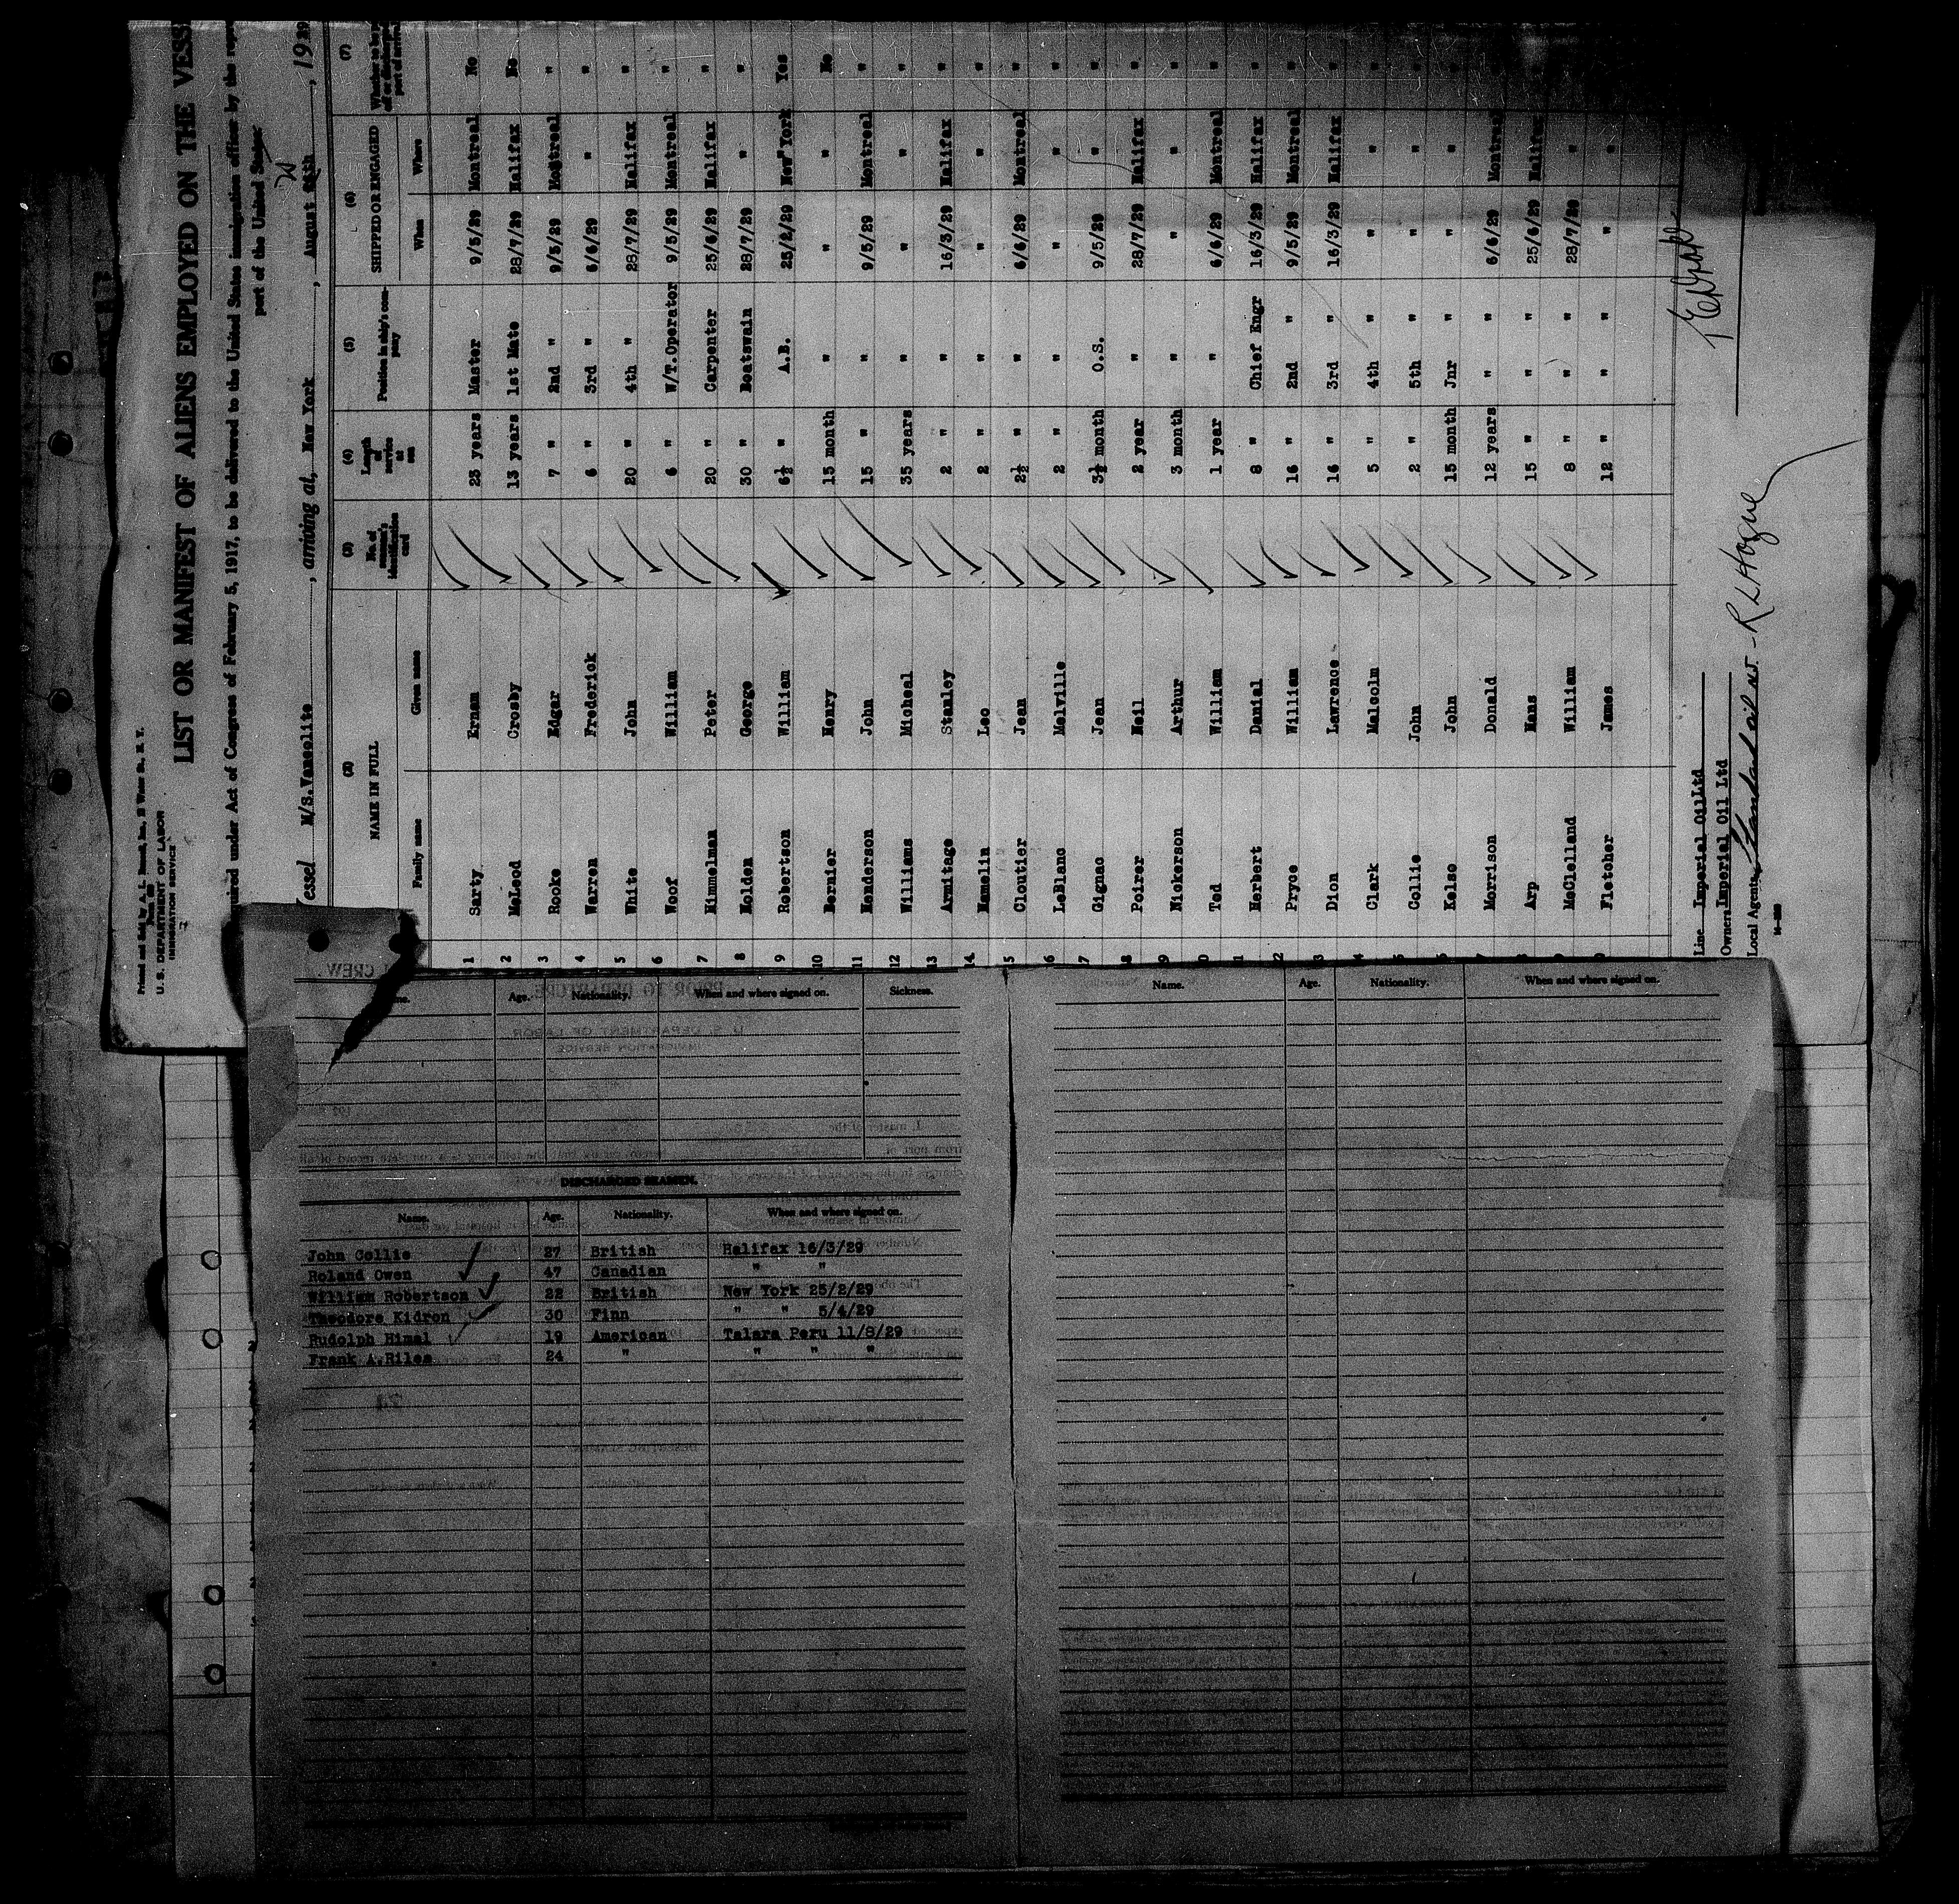 Printed and Sold by A. L.
U. S. DEPARTMENT OF LABOR
IMMIGRATION SERVICE
LIST OR MANIFEST OF ALIENS EMPLOYED ON THE VESS
uired under Act of Congress of February 5, 1917, to be delivered to the United States immigration officer by the rep
part of the United States
essel M/S.Vancolite , arriving at, New York , August , 19 29
(2) (3) (4) (5) (6) (7)
NAME IN FULL No. of seaman's identification card Length of service at sea Position in ship's company SHIPPED OR ENGAGED
Family name Given name When Where
1 Sarty Ernan 23 years Master 9/5/29 Montreal No
2 McLeod Crosby 13 years 1st Mate 28/7/29 Halifax No
3 Rooke Edgar 7 " 2nd " 9/5/29 Montreal "
4 Warren Frederick 6 " 3rd " 6/6/29 " "
5 White John 20 " 4th " 28/7/29 Halifax "
6 Woof William 6 " W/T.Operator 9/5/29 Montreal "
7 Himmelman Peter 20 " Carpenter 25/6/29 Halifax "
8 Molden George 30 " Boatswain 28/7/29 " "
9 Robertson William 6½ " A.B. 25/2/29 New York Yes
10 Bernier Henry 15 month " " " No
11 Henderson John 15 " " 9/5/29 Montreal "
12 Williams Micheal 35 years " " " "
13 Armitage Stanley 2 " " 16/3/29 Halifax "
14 Hamelin Leo 2 " " " " "
15 Cloutier Jean 2½ " " 6/6/29 Montreal "
16 LeBlanc Melville 2 " " " " "
17 Gignac Jean 3½ month O.S. 9/5/29 " "
18 Poirer Neil 2 year " 28/7/29 Halifax "
9 Nickerson Arthur 3 month " " " "
0 Ted William 1 year " 6/6/29 Montreal "
1 Herbert Danial 8 " Chief Engr 16/3/29 Halifax "
2 Pryce William 16 " 2nd " 9/5/29 Montreal "
3 Dion Lawrence 16 " 3rd " 16/3/29 Halifax "
4 Clark Malcolm 5 " 4th " " " "
5 Collie John 2 " 5th " " " "
6 Kelso John 15 month Jnr " " " "
7 Morrison Donald 12 years " " 6/6/29 Montreal "
8 Arp Hans 15 " " " 25/6/29 Halifax "
9 McClelland William 8 " " " 28/7/29 " "
0 Fletcher James 12 " " " " "
Line Imperial Oil Ltd
Owners Imperial Oil Ltd
Local Agents R L Hogue
CREW.
Age. Nationality. When and where signed on. Sickness.
DISCHARGED SEAMEN.
Name. Age. Nationality. When and where signed on.
John Collie 27 British Halifax 16/3/29
Roland Owen 47 Canadian " "
William Robertson 22 British New York 25/2/29
Theodore Kidron 30 Finn " " 5/4/29
Rudolph Himal 19 American Talara Peru 11/8/29
Frank A.Riles 24 " " " "
Name. Age. Nationality. When and where signed on.